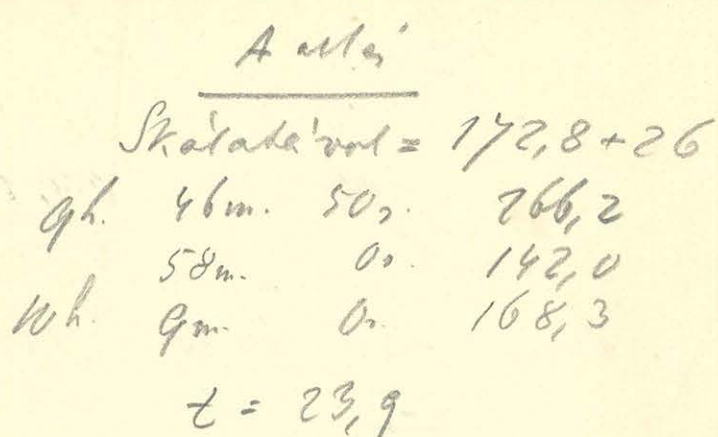 A állás
Skálatávol = 172,8 + 26
9h. 46m. 50s. 266,2
58m. 0s. 142,0
10h. 9m. 0s. 168,3
t = 23,9